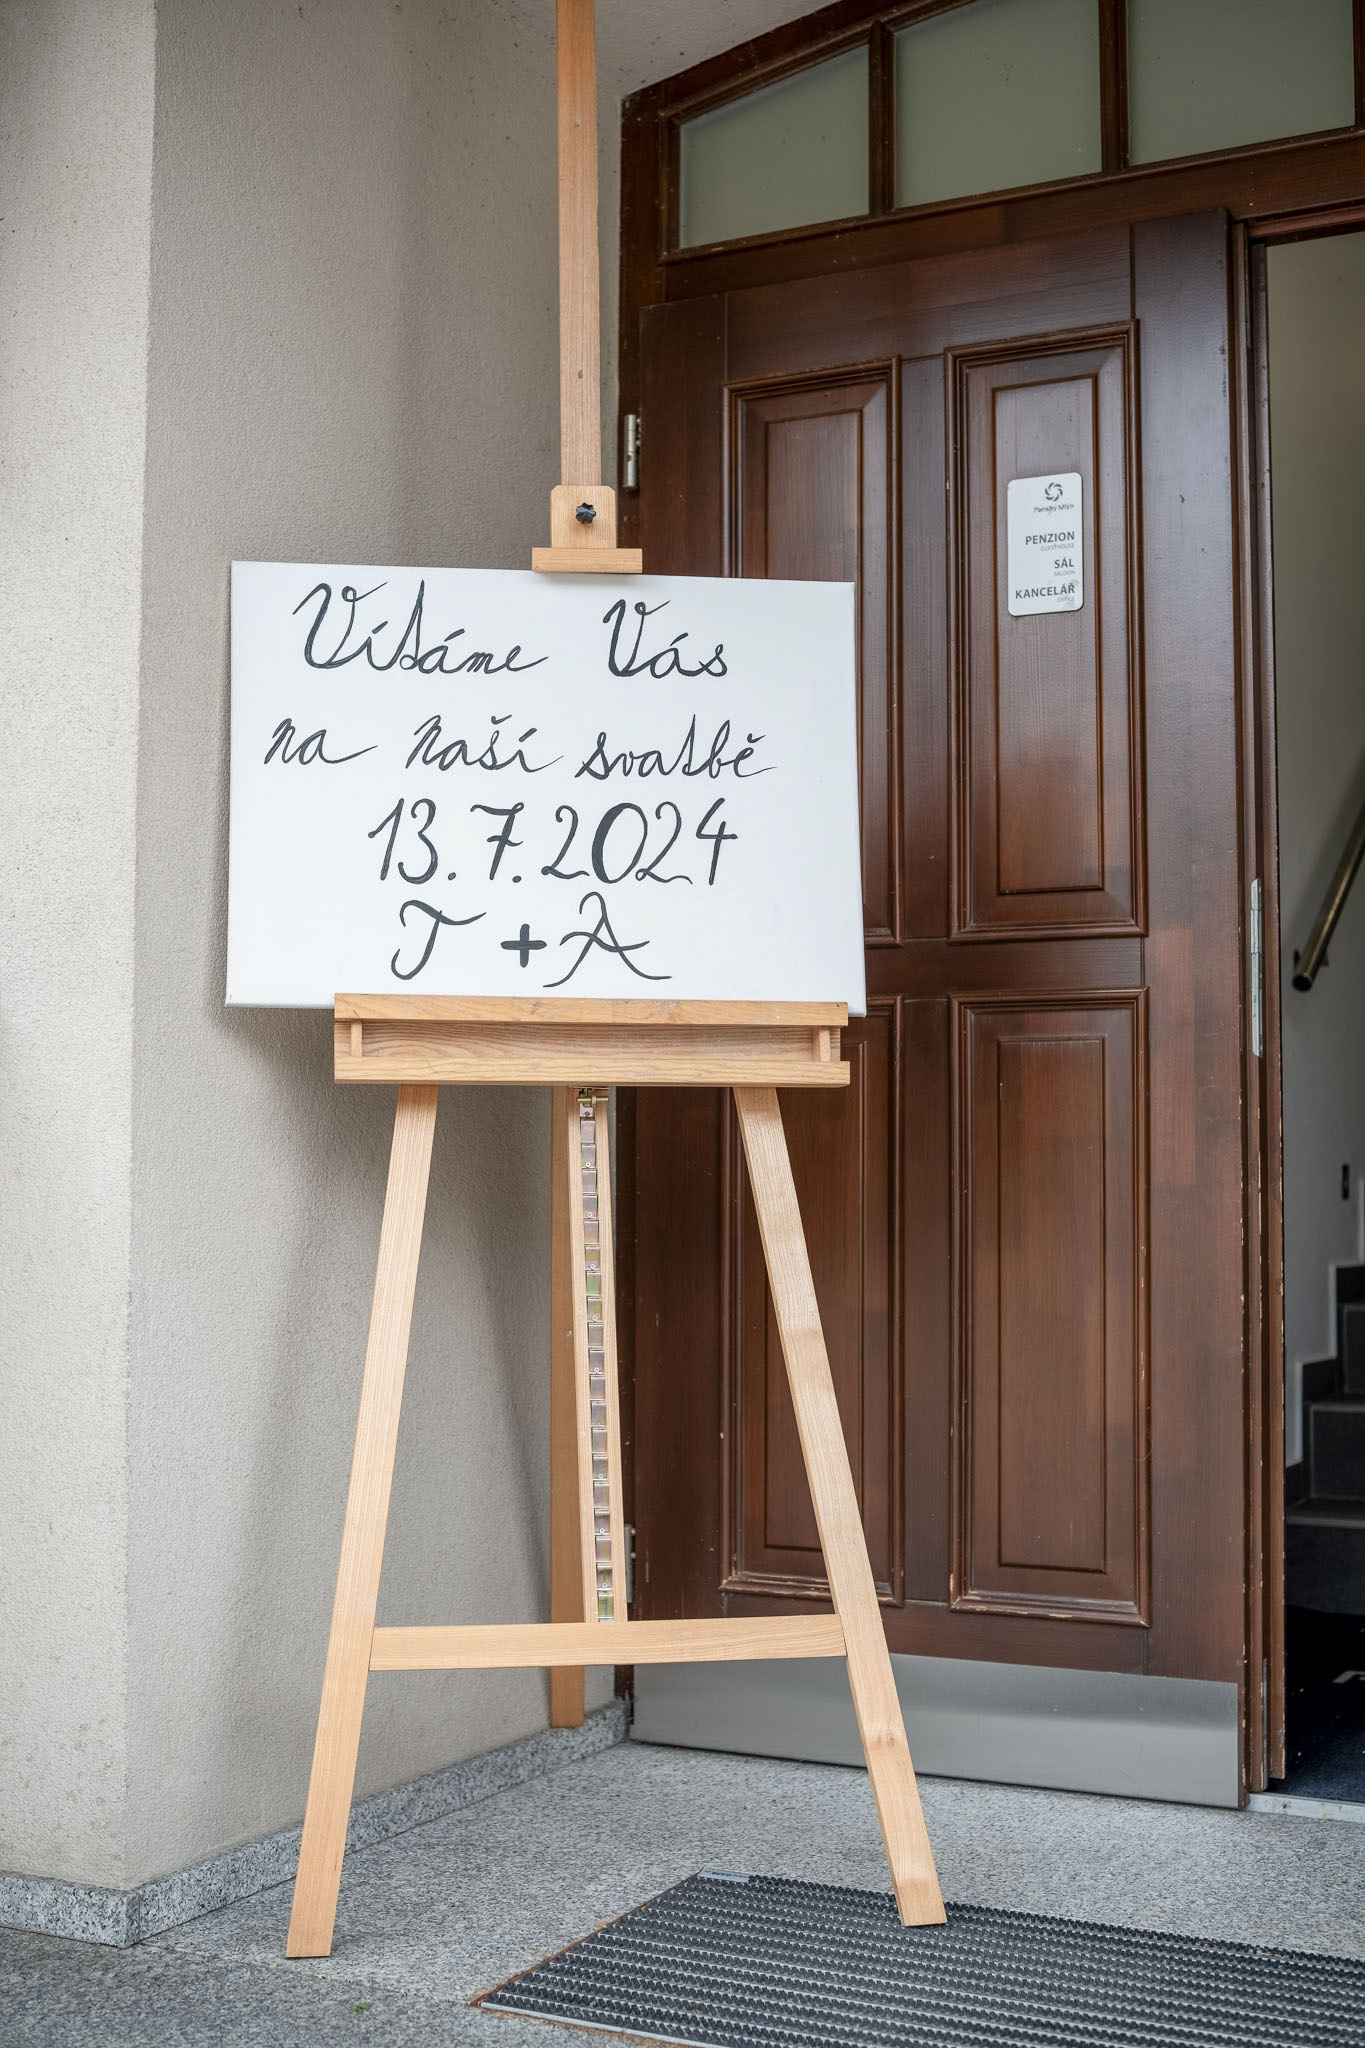 Vítáme Vás
na naší svatbě
13.7.2024
T + A
Panský Mlýn
PENZION
GUESTHOUSE
SÁL
SALOON
KANCELÁŘ
OFFICE